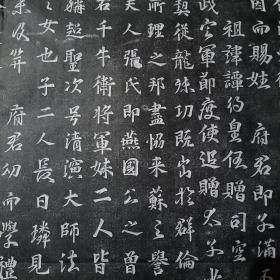 因而賜姓 府君即子
祖諱譚約皇任贈司空
政軍節度使追贈太子少
契從龍殊功既出於群倫
所理之邦盡協來蘇之譽
夫人張氏即燕國公之曾
右千牛衛將軍妹二人皆
稱超聖次号清演大師法
之女也子二人長曰璘見
未及笄 府君幼而學禮